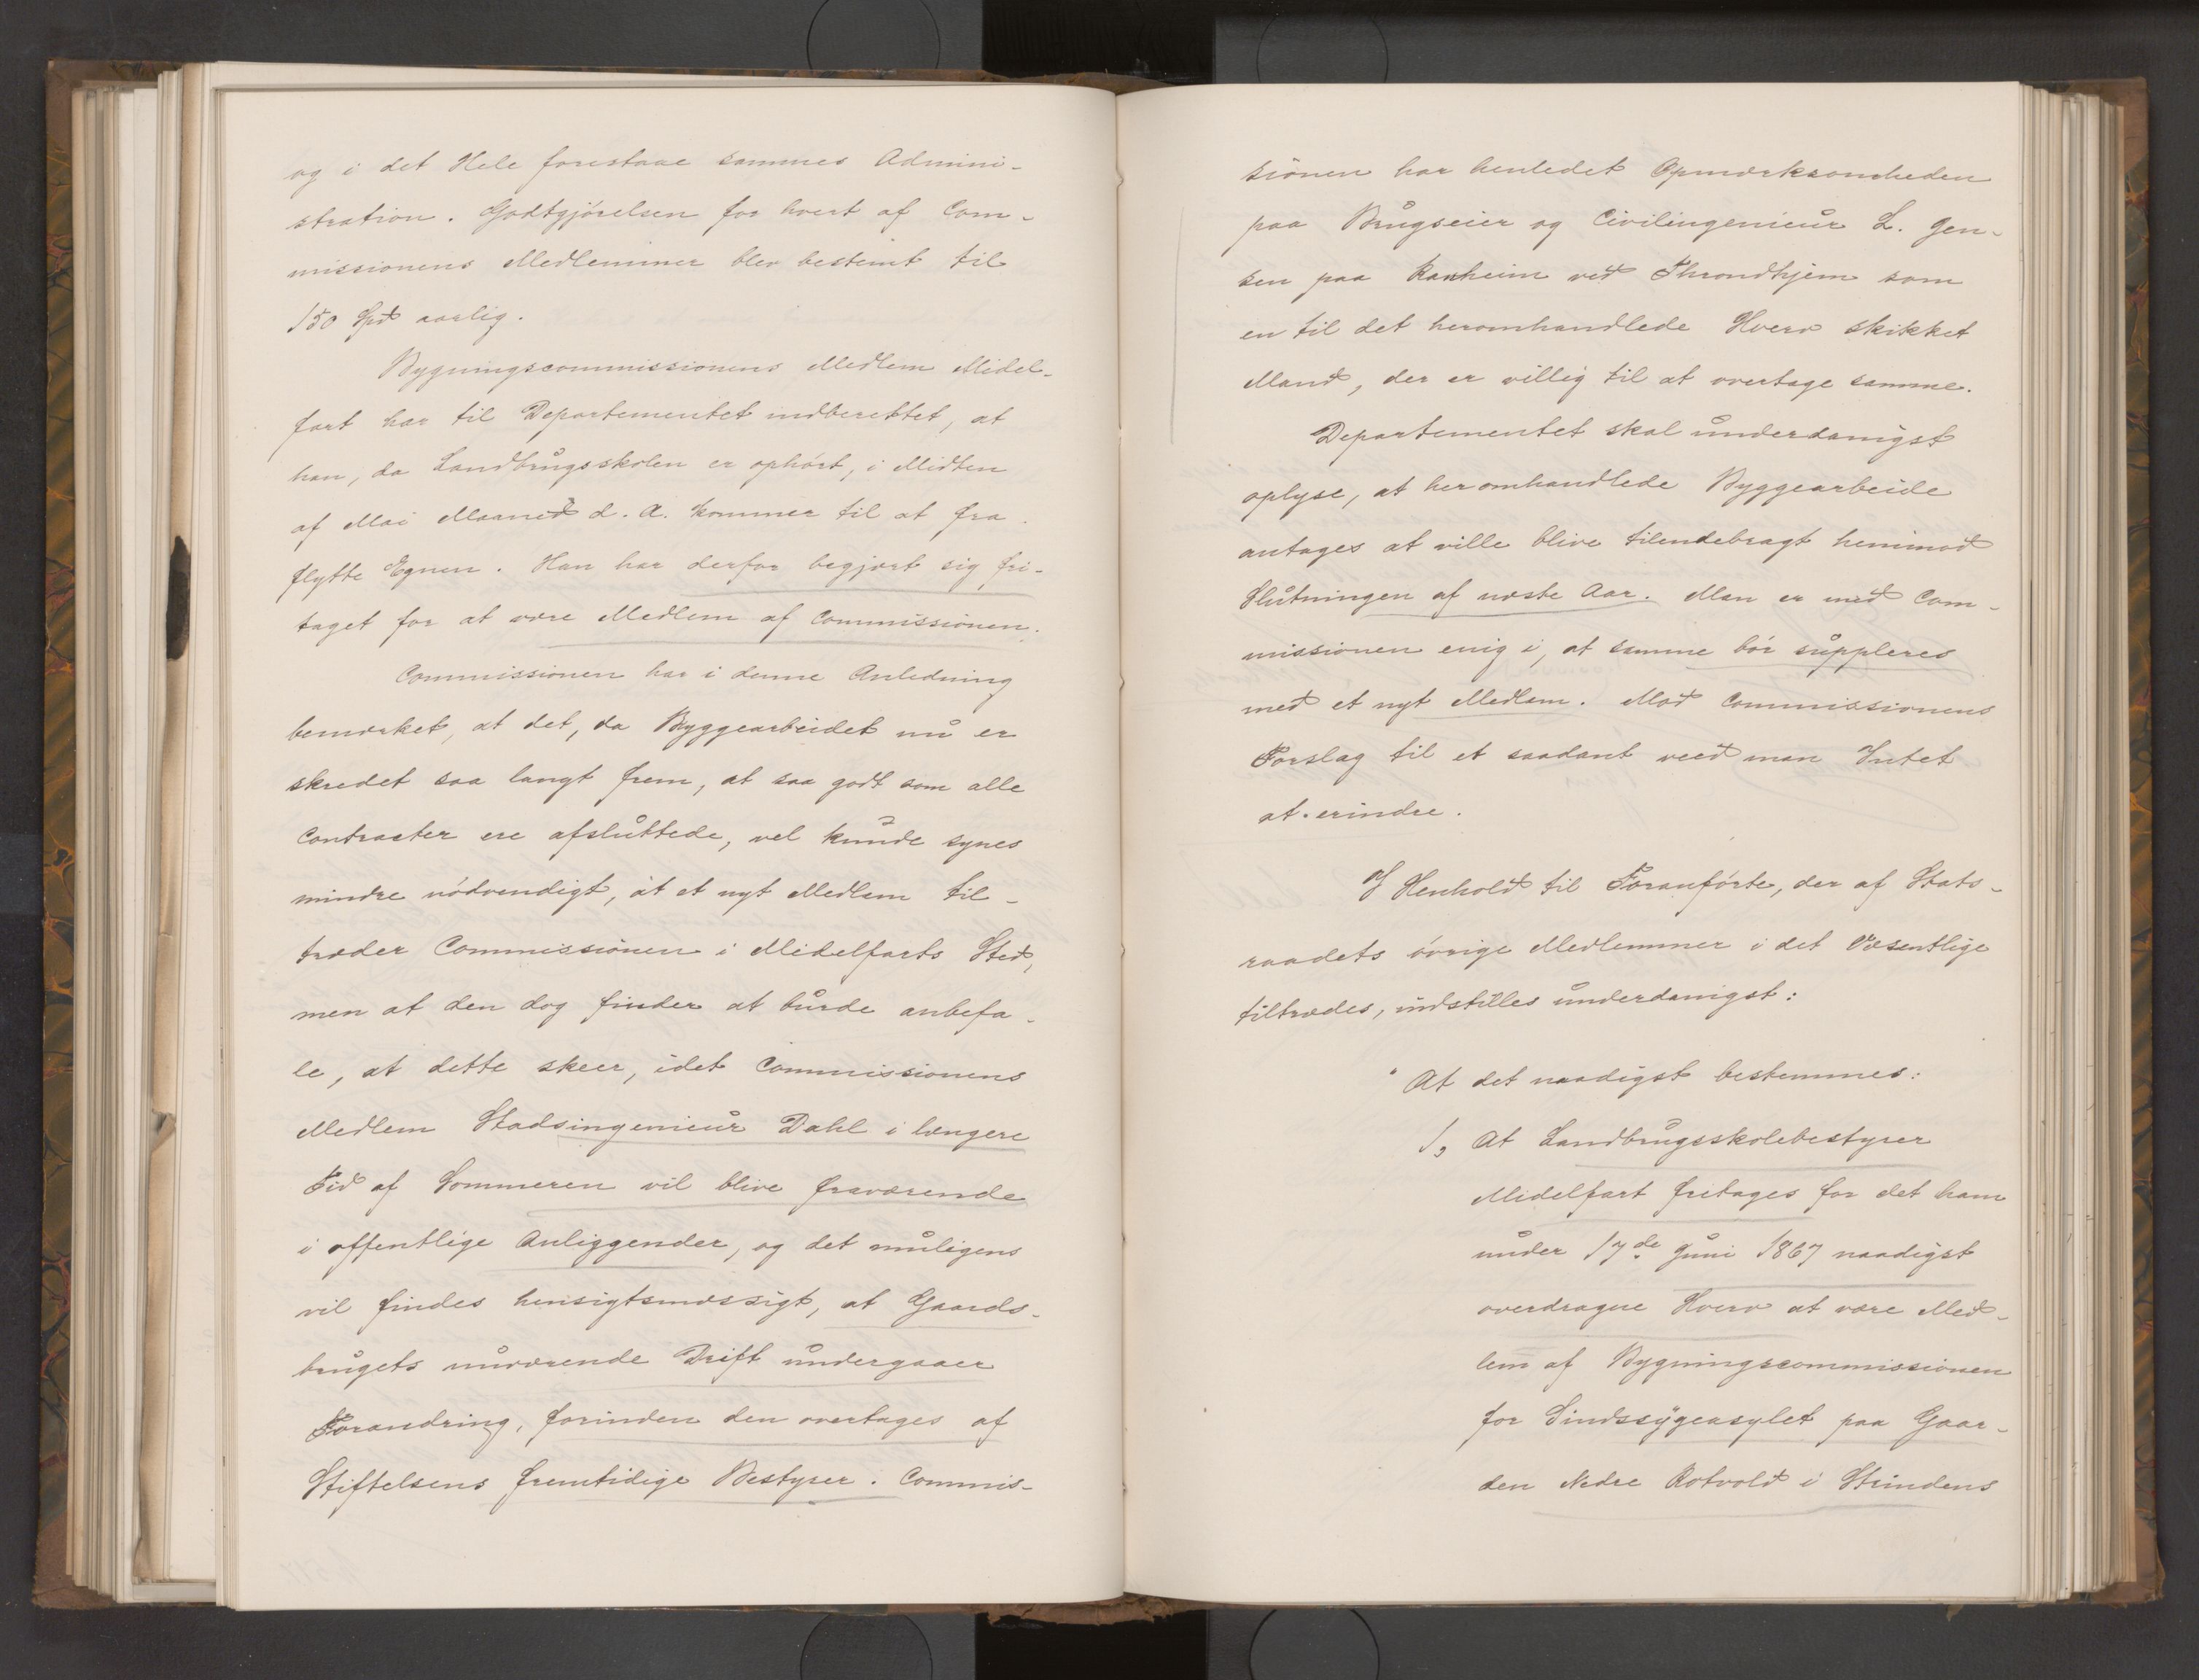 og i det Hele forestaae sammes Admini-
stration. Godtgjörelsen for hvert af Com-
missionens Medlemmer blev bestemt til
150 Spd aarlig.
Bygningscommissionens Medlem Midel-
fart har til Departementet indberettet, at
han, da Landbrugsskolen er ophört, i Midten
af Mai Maaned d. A. kommer til at fra-
flytte Egnen. Han har derfor begjært sig fri-
taget for at være Medlem af Commissionen.
Commissionen har i denne Anledning
bemærket, at det, da Byggearbeidet nu er
skredet saa langt frem, at saa godt som alle
Contracter ere afsluttede, vel kunde synes
mindre nödvendigt, at et nyt Medlem til-
træder Commissionen i Midelfarts Sted,
men at den dog finder at burde anbefa-
le, at dette skeer, idet Commissionens
Medlem Stadsingenieur Dahl i længere
Tid af Sommeren vil blive fraværende
i offentlige Anliggender, og det muligens
vil findes hensigtsmæssigt, at Gaards-
brugets nuværende Drift undergaaer
Forandring, forinden den overtages af
Stiftelsens fremtidige Bestyrer. Commis-
sionen har henledet Opmærksomheden
paa Brugseier og Civilingenieur L. Jen-
sen paa Ranheim ved Throndhjem som
en til det heromhandlede Hverv skikket
Mand, der er villig til at overtage samme.
Departementet skal underdanigst
oplyse, at heromhandlede Byggearbeide
antages at ville blive tilendebragt henimod
Slutningen af næste Aar. Man er med Com-
missionen enig i, at samme bör suppleres
med et nyt Medlem. Mod Commissionens
Forslag til et saadant veed man Intet
at erindre.
I Henhold til Foranförte, der af Stats-
raadets övrige Medlemmer i det Væsentlige
tiltrædes, indstilles underdanigst:
"At det naadigst bestemmes:
1, At Landbrugsskolebestyrer
Midelfart fritages for det ham
under 17de Juni 1867 naadigst
overdragne Hverv at være Med-
lem af Bygningscommissionen
for Sindssygeasylet paa Gaar-
den Nedre Rotvold i Strindens